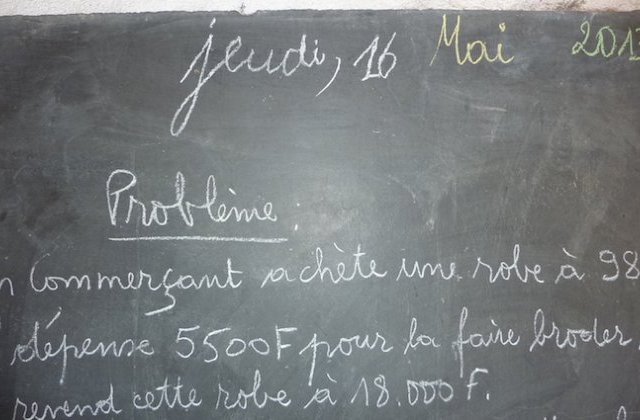 jeudi, 16 Mai 201
Problème :
Commerçant achète une robe à 98
dépense 5500F pour la faire broder,
revend cette robe à 18.000 F.